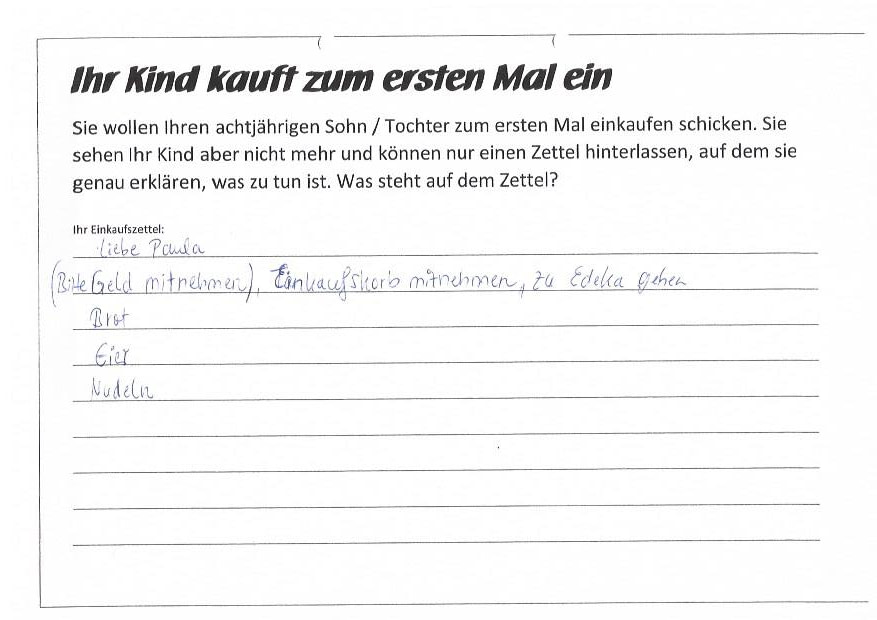 Ihr Kind kauft zum ersten Mal ein
Sie wollen Ihren achtjährigen Sohn / Tochter zum ersten Mal einkaufen schicken. Sie
sehen Ihr Kind aber nicht mehr und können nur einen Zettel hinterlassen, auf dem sie
genau erklären, was zu tun ist. Was steht auf dem Zettel?
Ihr Einkaufszettel:
Liebe Paula
(Bitte Geld mitnehmen), Einkaufskorb mitnehmen, zu Edeka gehen
Brot
Eier
Nudeln